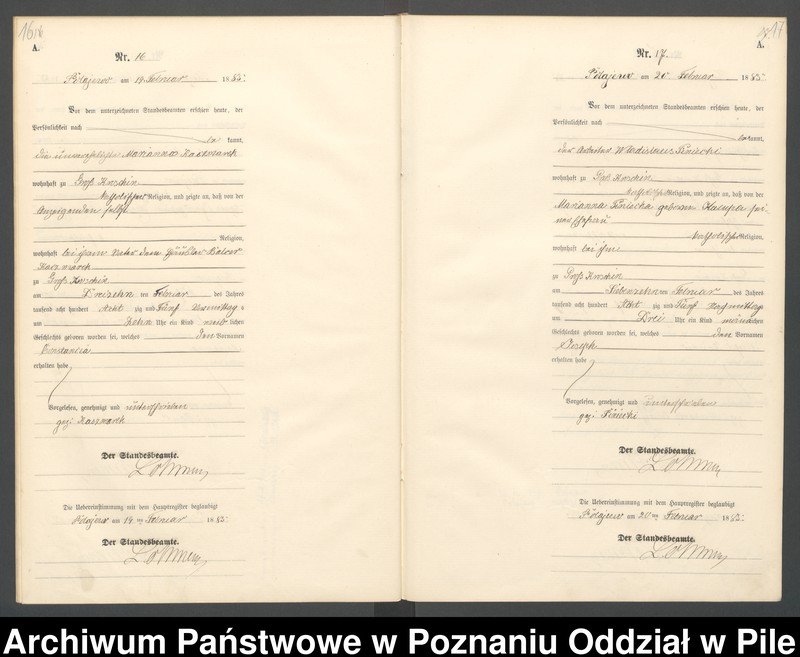 16
A.
Nr. 16
am 14. Februar 1885.
Vor dem unterzeichneten Standesbeamten erschien heute, der
Persönlichkeit nach
be kannt,
die unverehelichte Marianna Kaczmarek
wohnhaft zu Groß Kruschin
katholischer Religion, und zeigte an, daß von der
Anzeigenden selbst
Religion,
wohnhaft bei ihrem Vater dem
Kaczmarek
zu Groß Kruschin
am Dreizehn ten Februar des Jahres
tausend acht hundert Acht zig und Fünf Vormittag s
um Zehn Uhr ein Kind weib lichen
Geschlechts geboren worden sei, welches den Vornamen
Constancia
erhalten habe
Vorgelesen, genehmigt und unterschrieben
gez: Kaczmarek
Der Standesbeamte.
Die Uebereinstimmung mit dem Hauptregister beglaubigt
am 14. ten Februar 1885.
Der Standesbeamte.
17
A.
Nr. 17.
am 20 Februar 1885.
Vor dem unterzeichneten Standesbeamten erschien heute, der
Persönlichkeit nach
be kannt,
der Arbeiter Wladislaus
wohnhaft zu Groß Kruschin
katholischer Religion, und zeigte an, daß von der
Marianna geborene sei
ner Ehefrau
katholischer Religion,
wohnhaft bei ihm
zu Groß Kruschin
am Siebenzehn ten Februar des Jahres
tausend acht hundert Acht zig und Fünf Nachmittags
um Drei Uhr ein Kind männlichen
Geschlechts geboren worden sei, welches den Vornamen
Joseph
erhalten habe
Vorgelesen, genehmigt und unterschrieben
gez:
Der Standesbeamte.
Die Uebereinstimmung mit dem Hauptregister beglaubigt
am 20 ten Februar 1885.
Der Standesbeamte.
Archiwum Państwowe w Poznaniu Oddział w Pile